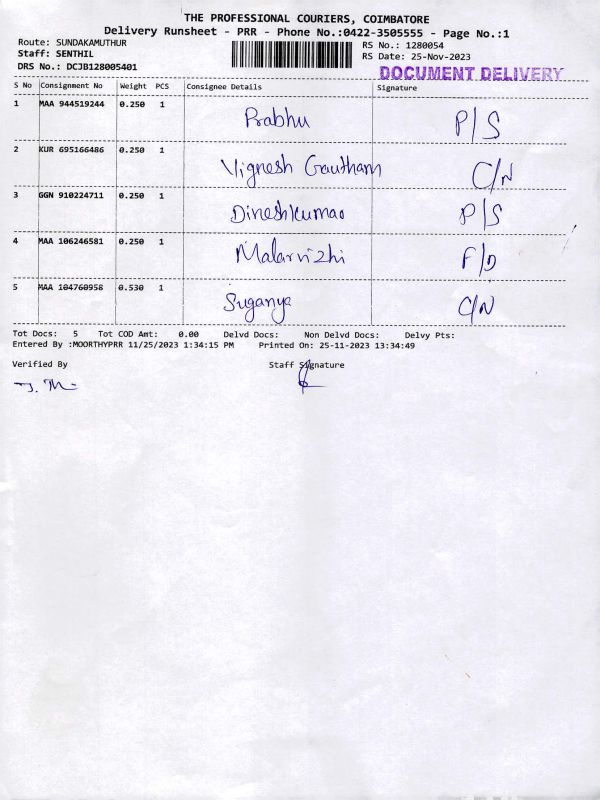 THE PROFESSIONAL COURIERS, COIMBATORE
Delivery Runsheet - PRR - Phone No.:0422-3505555 - Page No.:1
Route: SUNDAKAMUTHUR RS No.: 1280054
Staff: SENTHIL RS Date: 25-Nov-2023
DRS No.: DCJB128005401 DOCUMENT DELIVERY
S No Consignment No Weight PCS Consignee Details Signature
1 MAA 944519244 0.250 1 Prabhu P/S
2 KUR 695166486 0.250 1 Vignesh Gautham C/N
3 GGN 910224711 0.250 1 Dineshkumar P/S
4 MAA 106246581 0.250 1 Malarvizhi F/D
5 MAA 104760958 0.530 1 Suganya C/N
Tot Docs: 5 Tot COD Amt: 0.00 Delvd Docs: Non Delvd Docs: Delvy Pts:
Entered By :MOORTHYPRR 11/25/2023 1:34:15 PM Printed On: 25-11-2023 13:34:49
Verified By Staff Signature